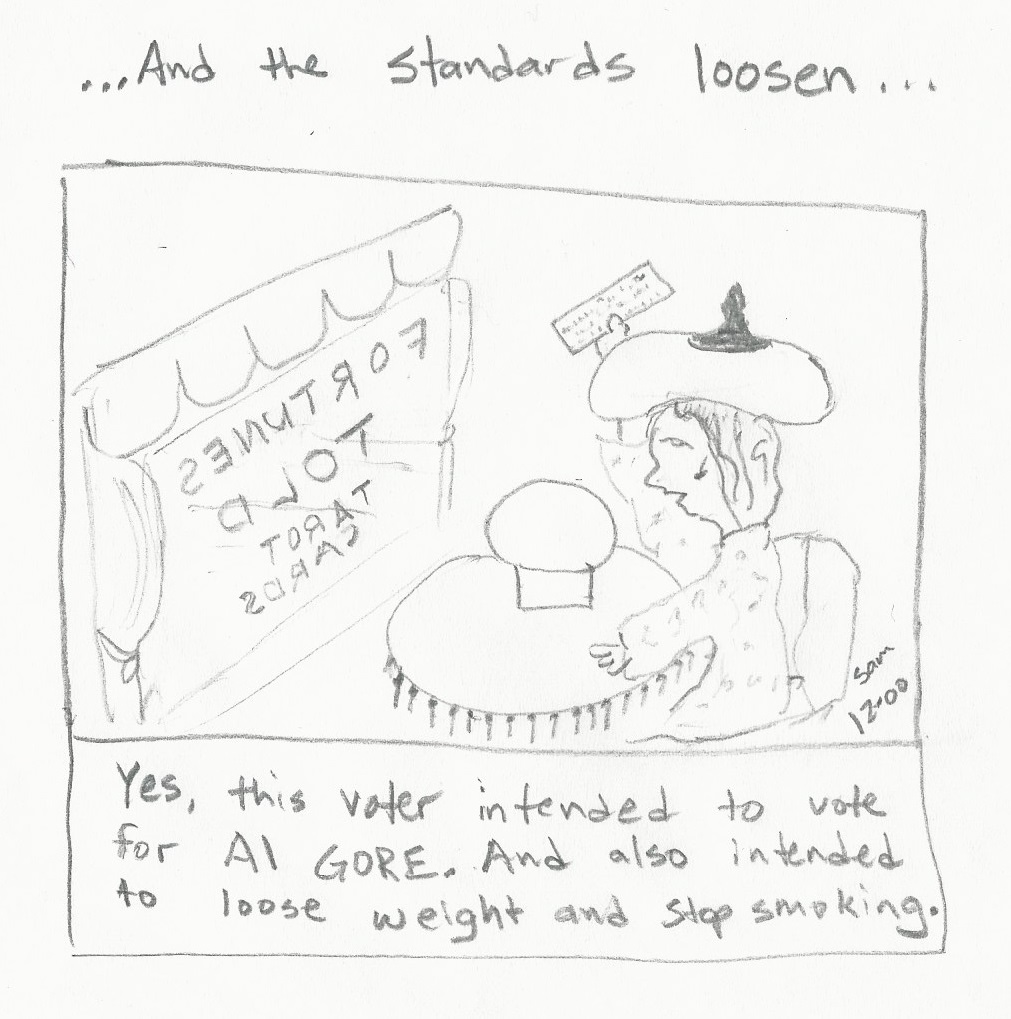 ...And the standards loosen...
FORTUNES
TOLD
TAROT
CARDS
Sam
12-00
Yes, this voter intended to vote
for Al GORE. And also intended
to loose weight and stop smoking.